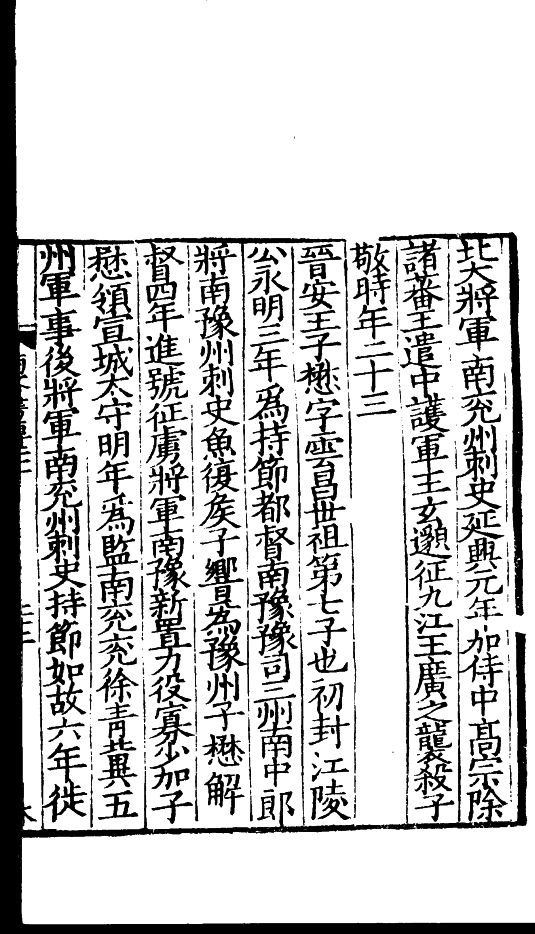 北大將軍南兖州刺史延興元年加侍中髙宗除
諸蕃王遣中護軍王玄邈征九江王廣之襲殺子
敬時年二十三
晉安王子懋字雲昌世祖第七子也初封江陵
公永明三年爲持節都督南豫豫司三州南中郎
將南豫州刺史魚復侯子響爲豫州子懋解
督四年進號征虜將軍南豫新置力役寡少加子
懋領宣城太守明年爲監南兖兖徐青冀五
州軍事後將軍南兖州刺史持節如故六年徙